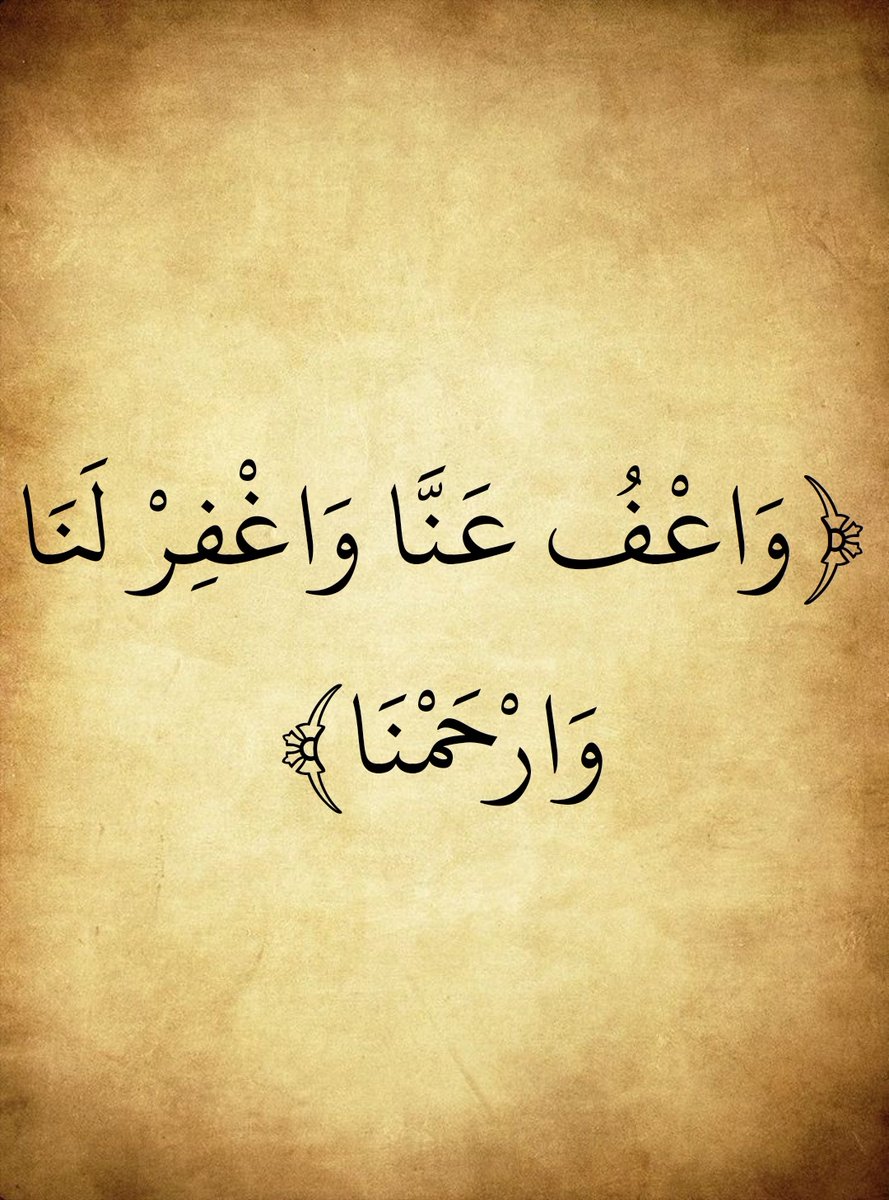 ﴿وَاعْفُ عَنَّا وَاغْفِرْ لَنَا
وَارْحَمْنَا﴾